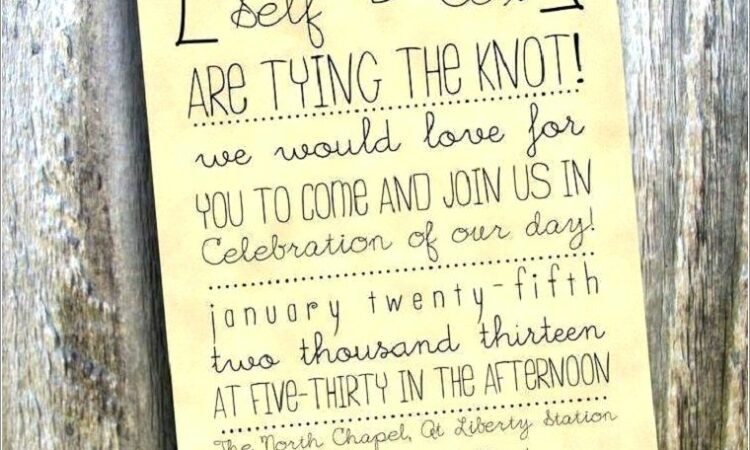 Self
ARE TYING THE KNOT!
we would love for
YOU TO COME AND JOIN US IN
Celebration of our day!
january twenty-fifth
two thousand thirteen
AT FIVE-THIRTY IN THE AFTERNOON
The North Chapel, At Liberty Station